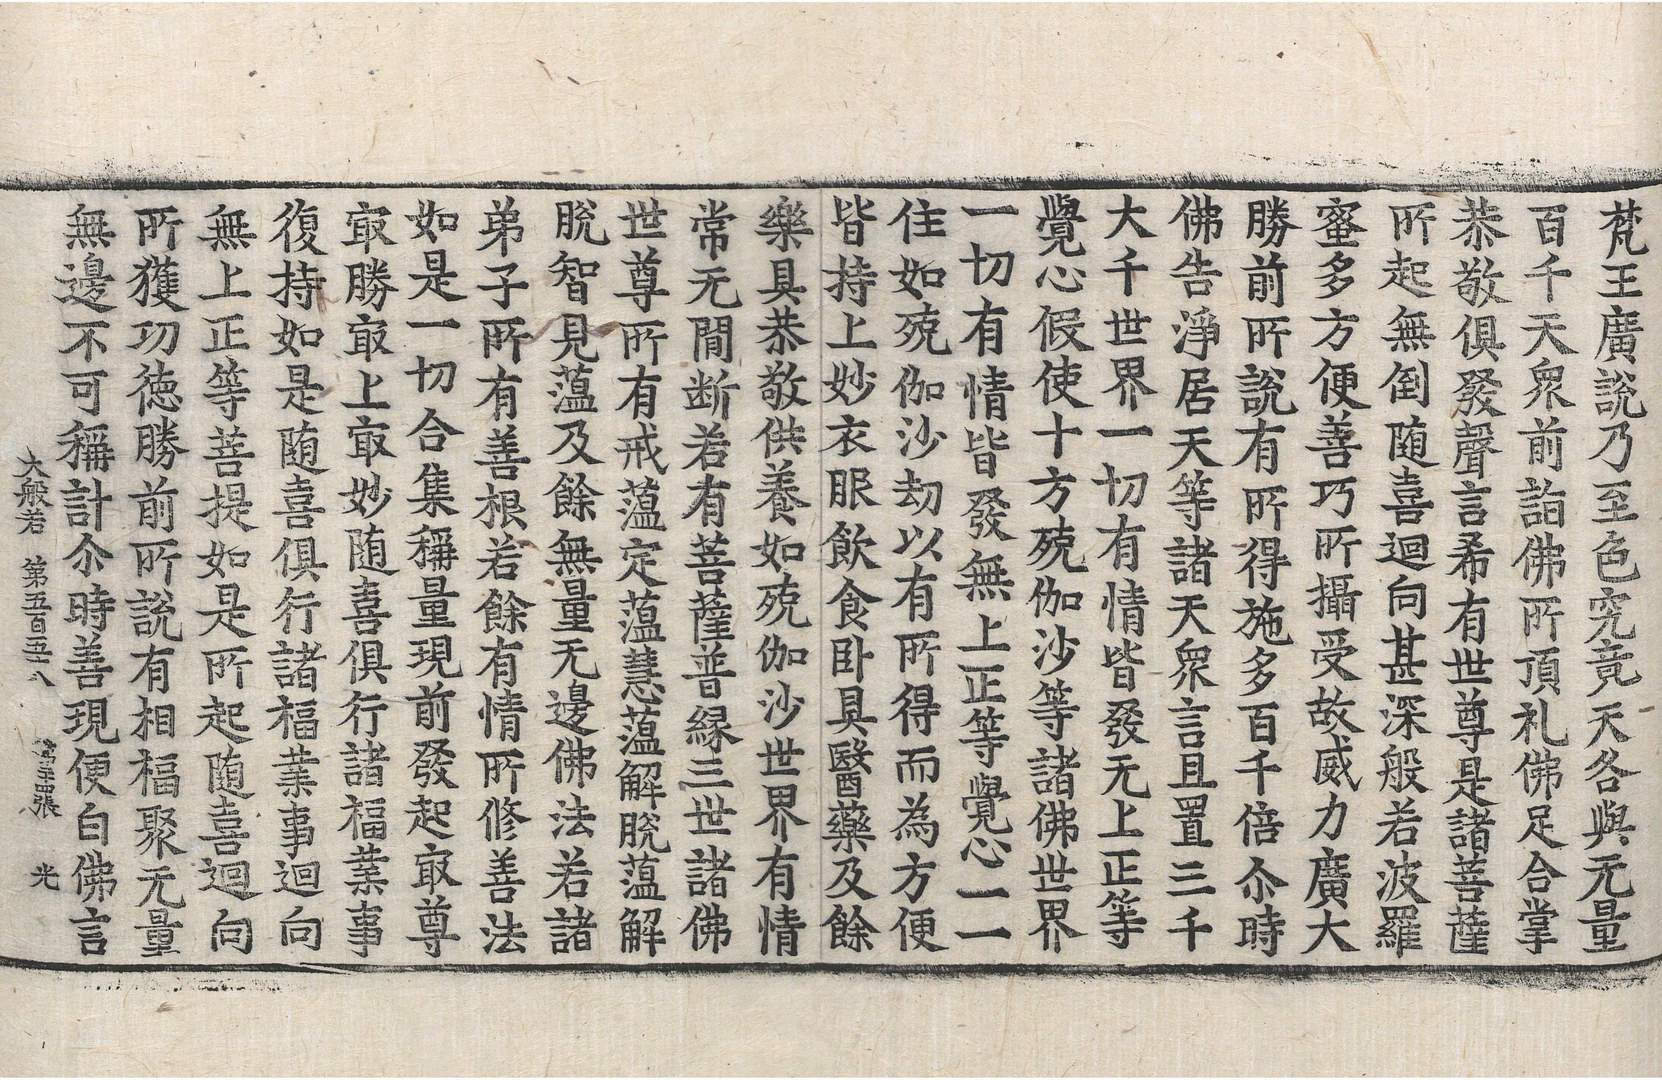 梵王廣說乃至色究竟天各與无量
百千天衆前詣佛所頂礼佛足合掌
恭敬俱發聲言希有世尊是諸菩薩
所起無倒随喜迴向甚深般若波羅
蜜多方便善巧所攝受故威力廣大
勝前所說有所得施多百千倍尒時
佛告淨居天等諸天衆言且置三千
大千世界一切有情皆發无上正等
覺心假使十方殑伽沙等諸佛世界
一切有情皆發無上正等覺心一一
住如殑伽沙劫以有所得而為方便
皆持上妙衣服飲食卧具醫藥及餘
樂具恭敬供養如殑伽沙世界有情
常无閒断若有菩薩普緣三世諸佛
世尊所有戒蕰定蕰慧蕰解脫蕰解
脫智見蕰及餘無量无邊佛法若諸
弟子所有善根若餘有情所修善法
如是一切合集稱量現前發起㝡尊
㝡勝㝡上㝡妙随喜俱行諸福業事
復持如是随喜俱行諸福業事迴向
無上正等菩提如是所起随喜迴向
所獲功徳勝前所說有相福聚无量
無邊不可稱計尒時善現便白佛言
大般若 第五百五十八 第二十四張 光